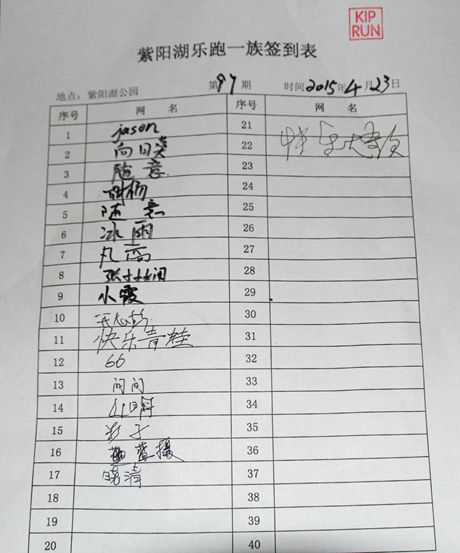 KIP
RUN
紫阳湖乐跑一族签到表
地点：紫阳湖公园 第97期 时间2015年4月23日
序号 网名 序号 网名
1 jason 21
2 向日葵 22
3 随意 23
4 胡杨 24
5 随意 25
6 冰雨 26
7 27
8 28
9 小霞 29
10 30
11 快乐青蛙 31
12 66 32
13 问问 33
14 34
15 35
16 36
17 晓清 37
18 38
19 39
20 40